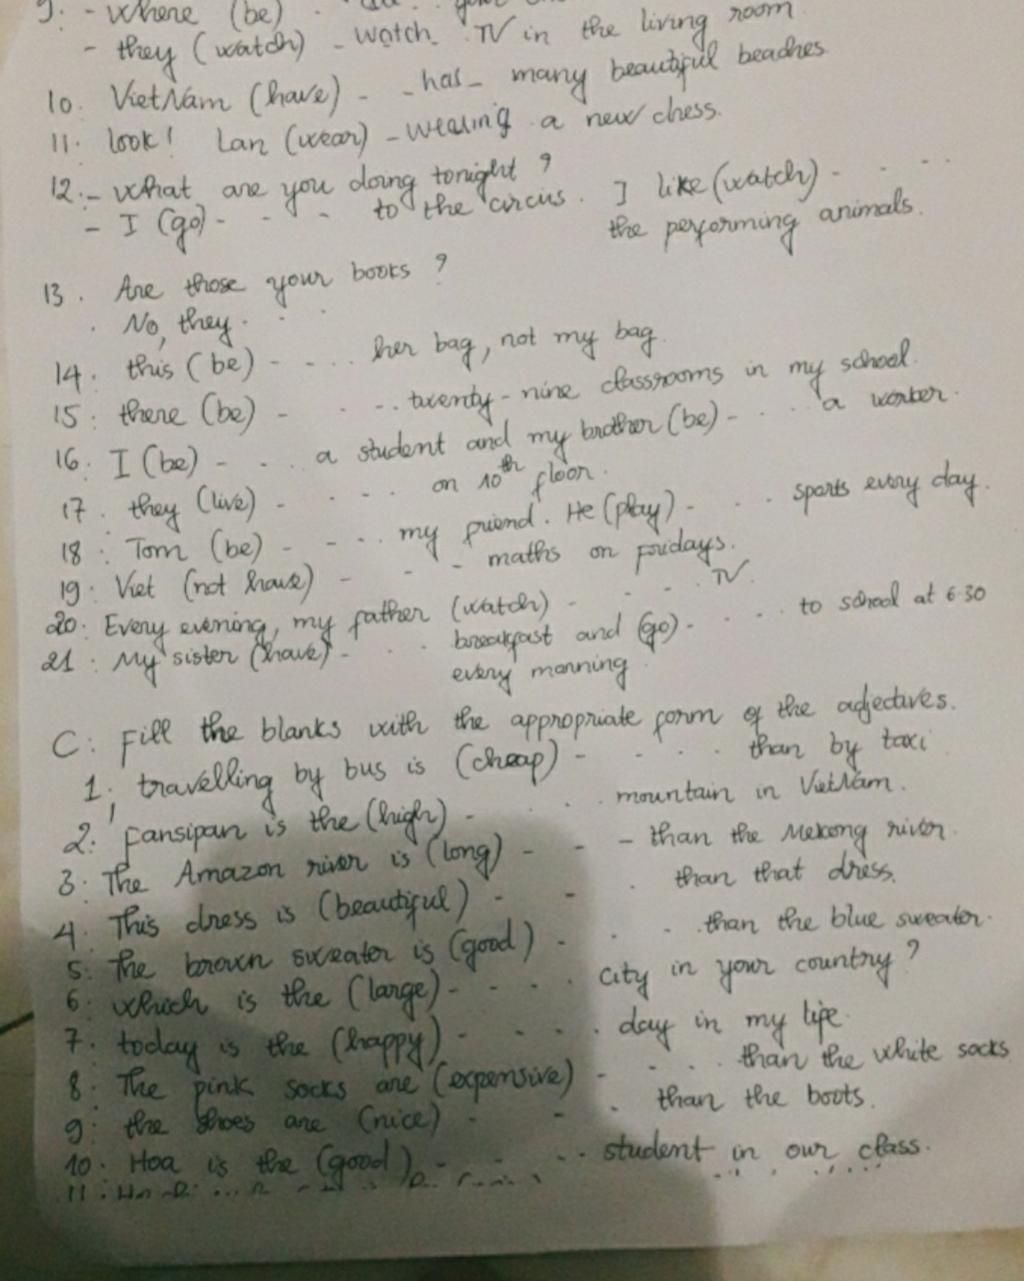 9. - Where (be)
- they (watch) - watch - TV in the living room
10. VietNam (have) - - has - many beautiful beaches
11. look! Lan (wear) - wearing a new chess.
12. - What are you doing tonight ?
- I (go) - - - to the circus. I like (watch) - . . .
the performing animals.
13. Are those your books ?
. No, they . . .
14. this (be) - . . . her bag, not my bag.
15. there (be) - . . . twenty-nine classrooms in my school.
16. I (be) - . . . a student and my brother (be) - . . . a worker.
17. they (live) - . . . on 10th floor.
18. Tom (be) - - . . . my friend. He (play) - . . . sports every day.
19. Viet (not have) - - - maths on fridays.
20. Every evening, my father (watch) - - - . TV.
21. My sister (have) - . . . breakfast and (go) - . . . to school at 6.30
every morning
C: Fill the blanks with the appropriate form of the adjectives.
1. travelling by bus is (cheap) - . . . than by taxi
2. Fansipan is the (high) - . . . mountain in VietNam.
3. The Amazon river is (long) - - - than the Mekong river.
4. This dress is (beautiful) - - . than that dress.
5. The brown sweater is (good) - . - . than the blue sweater.
6. which is the (large) - . . . city in your country ?
7. today is the (happy) - . . . day in my life.
8. The pink socks are (expensive) - . . . than the white socks
9. the shoes are (nice) - - . than the boots.
10. Hoa is the (good) - - . . student in our class.
11.